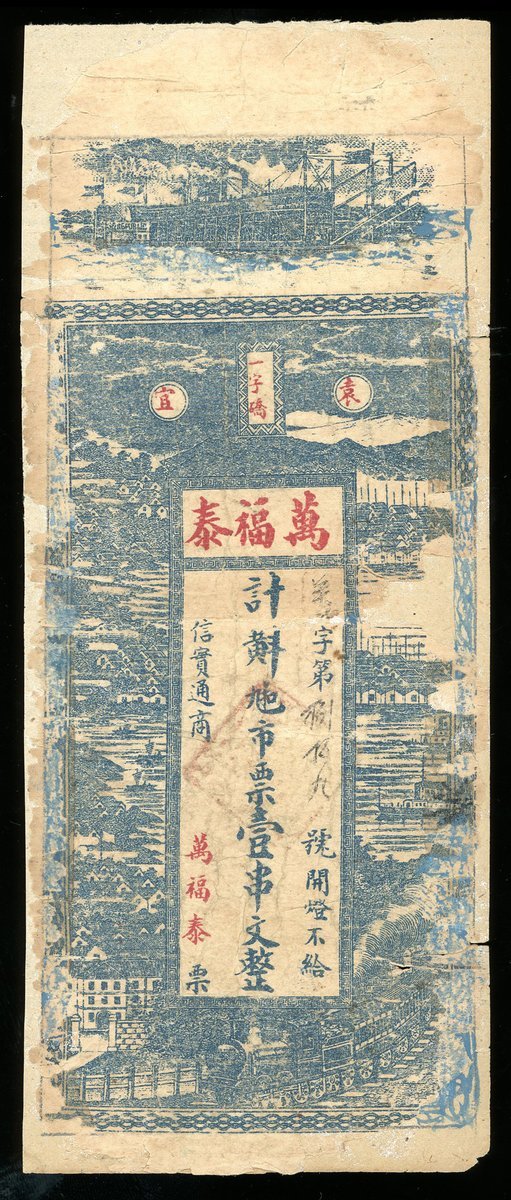 袁宜
一字礄
萬福泰
字第捌佰九號開燈不給
計斢地市票壹串文整
信實通商 萬福泰票